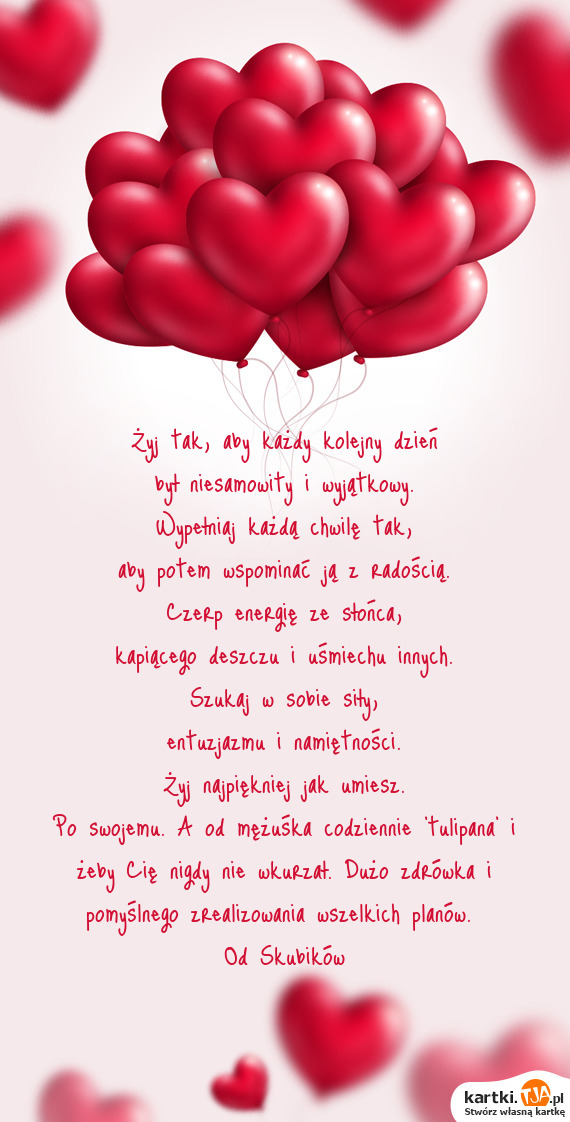 Żyj tak, aby każdy kolejny dzień
był niesamowity i wyjątkowy.
Wypełniaj każdą chwilę tak,
aby potem wspominać ją z radością.
Czerp energię ze słońca,
kapiącego deszczu i uśmiechu innych.
Szukaj w sobie siły,
entuzjazmu i namiętności.
Żyj najpiękniej jak umiesz.
Po swojemu. A od mężuśka codziennie "tulipana" i
żeby Cię nigdy nie wkurzał. Dużo zdrówka i
pomyślnego zrealizowania wszelkich planów.
Od Skubików
kartki.TJA.pl
Stwórz własną kartkę